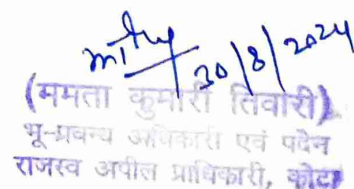 30/8/2024
(ममता कुमारी तिवारी)
भू-प्रबन्ध अधिकारी एवं पदेन
राजस्व अपील प्राधिकारी, कोटा